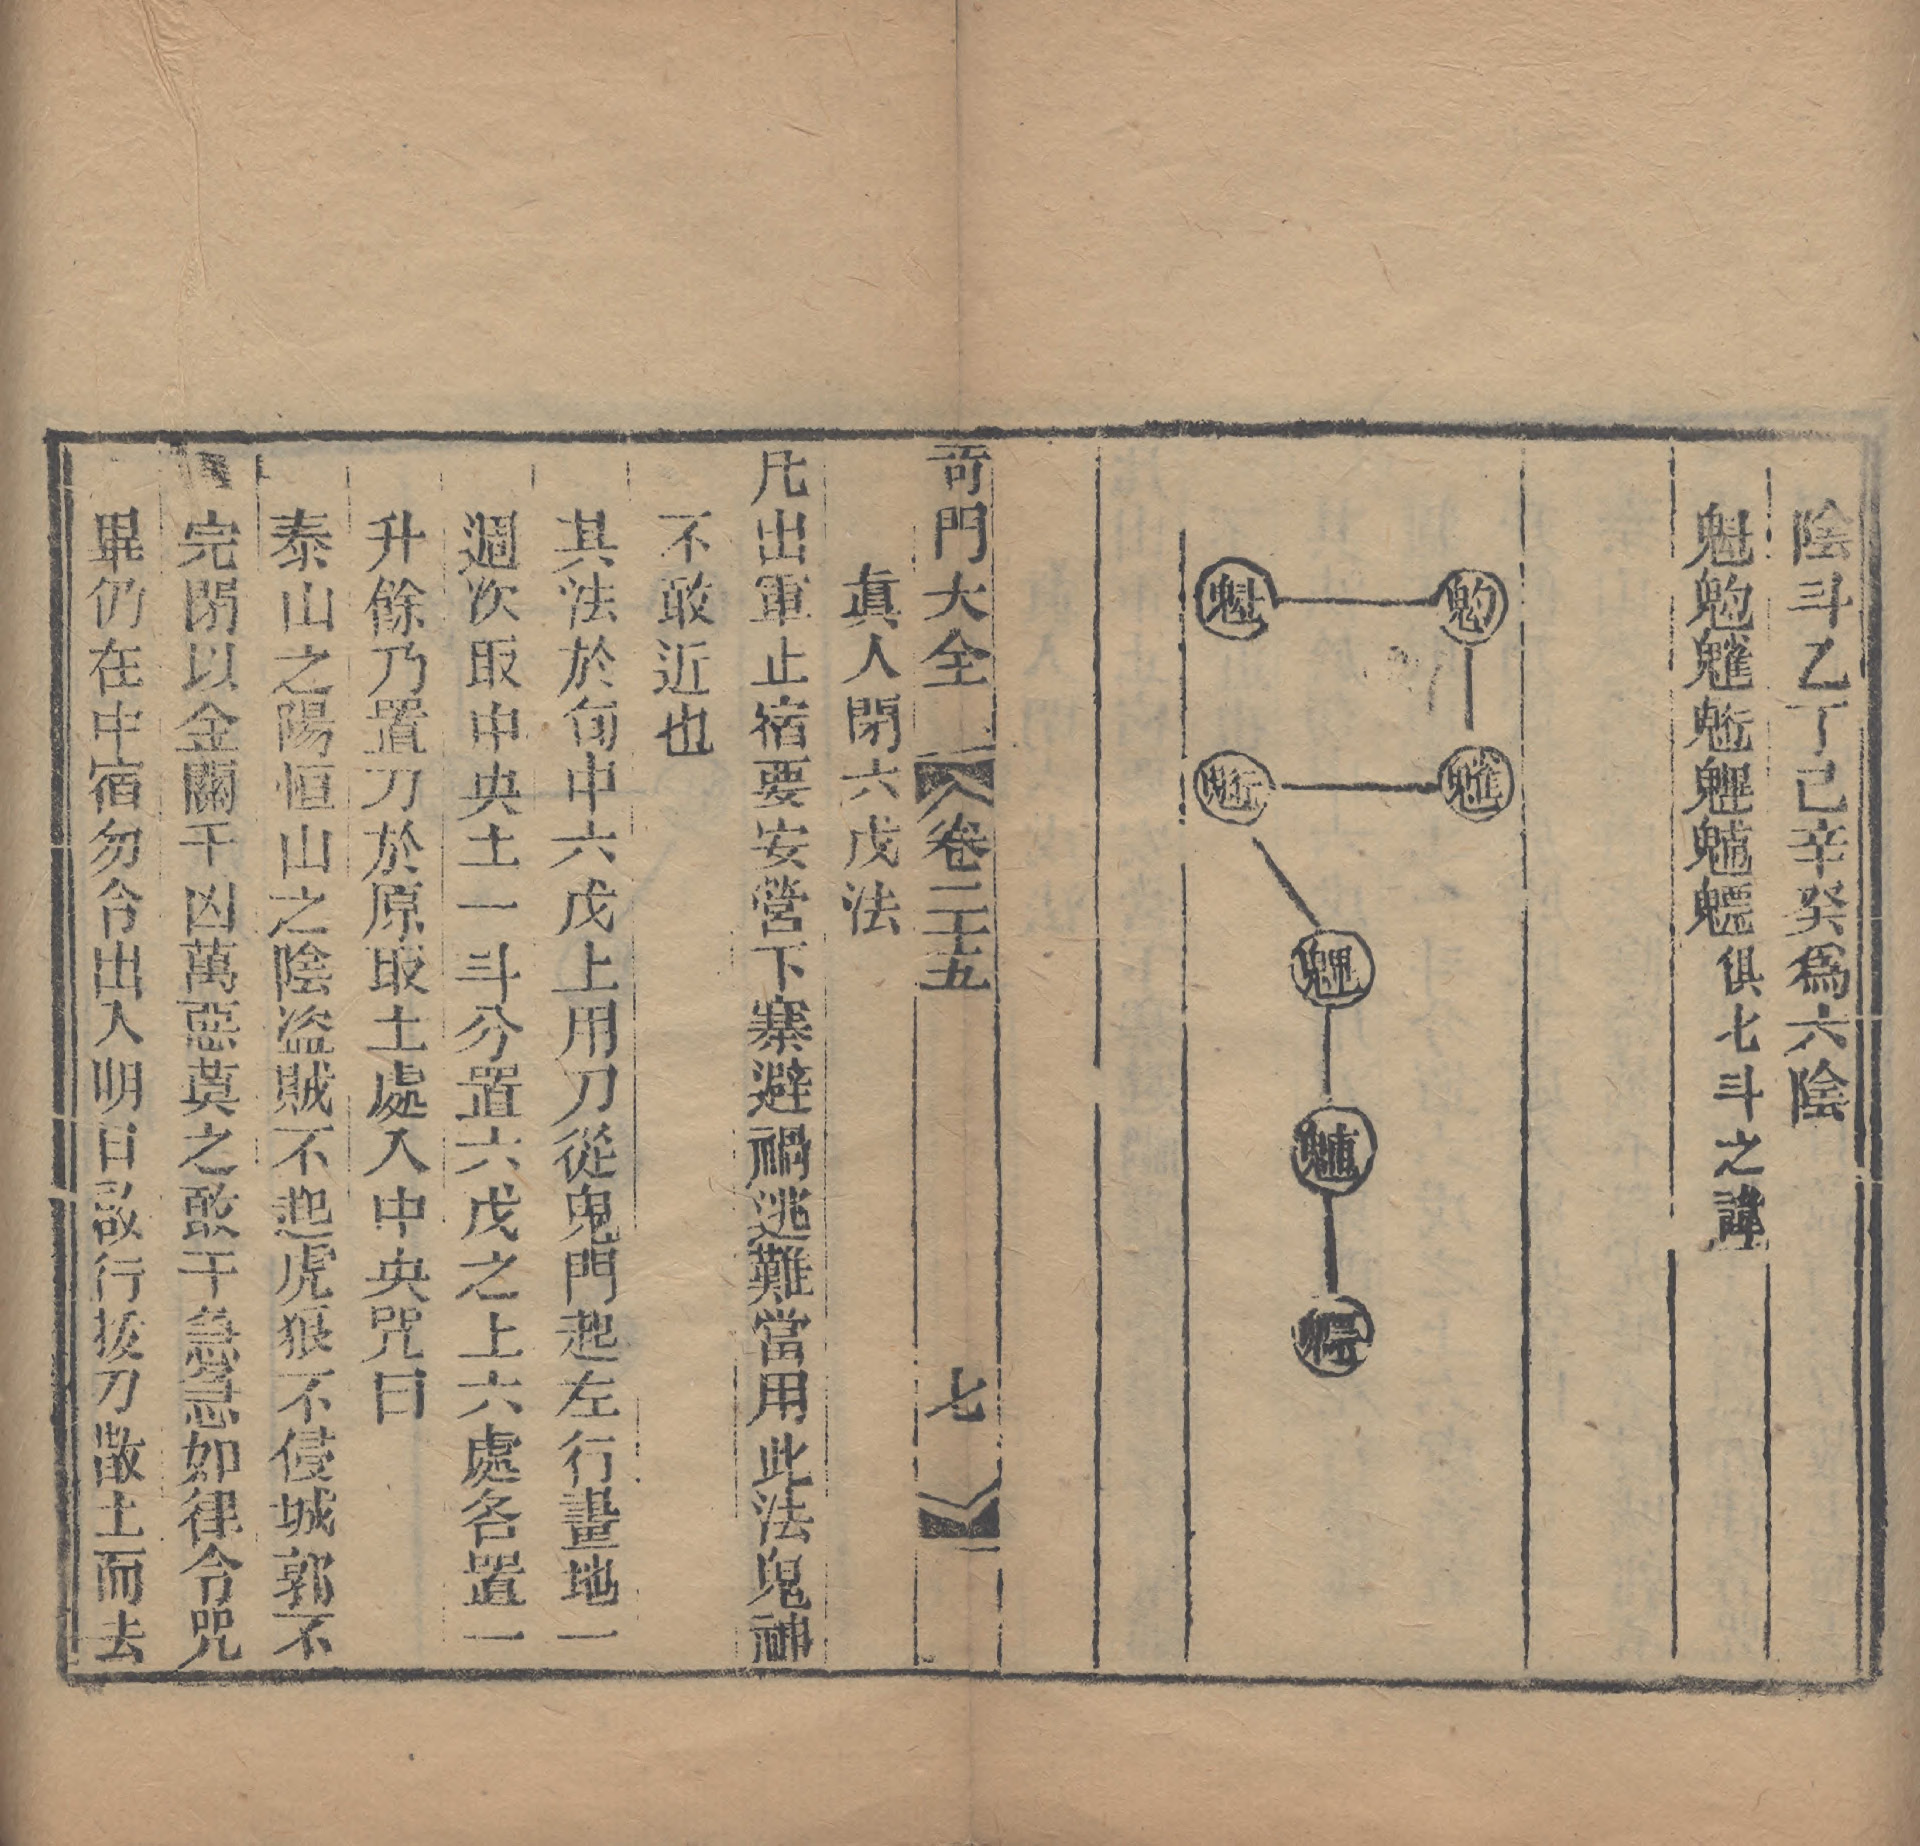 陰斗乙丁己辛癸爲六陰
魁俱七斗之諱
魁
奇門大全 卷二十五 七
眞人閉六戊法
凡出軍止宿要安營下寨避禍逃難當用此法鬼神
不敢近也
其法於旬中六戊上用刀從鬼門起左行畫地一
週次取中央土一斗分置六戊之上六處各置一
升餘乃置刀於原取土處入中央咒曰
泰山之陽恒山之陰盜賊不起虎狼不侵城郭不
完閉以金關千凶萬惡莫之敢干急急如律令咒
畢仍在中宿勿令出入明日欲行拔刀散土而去